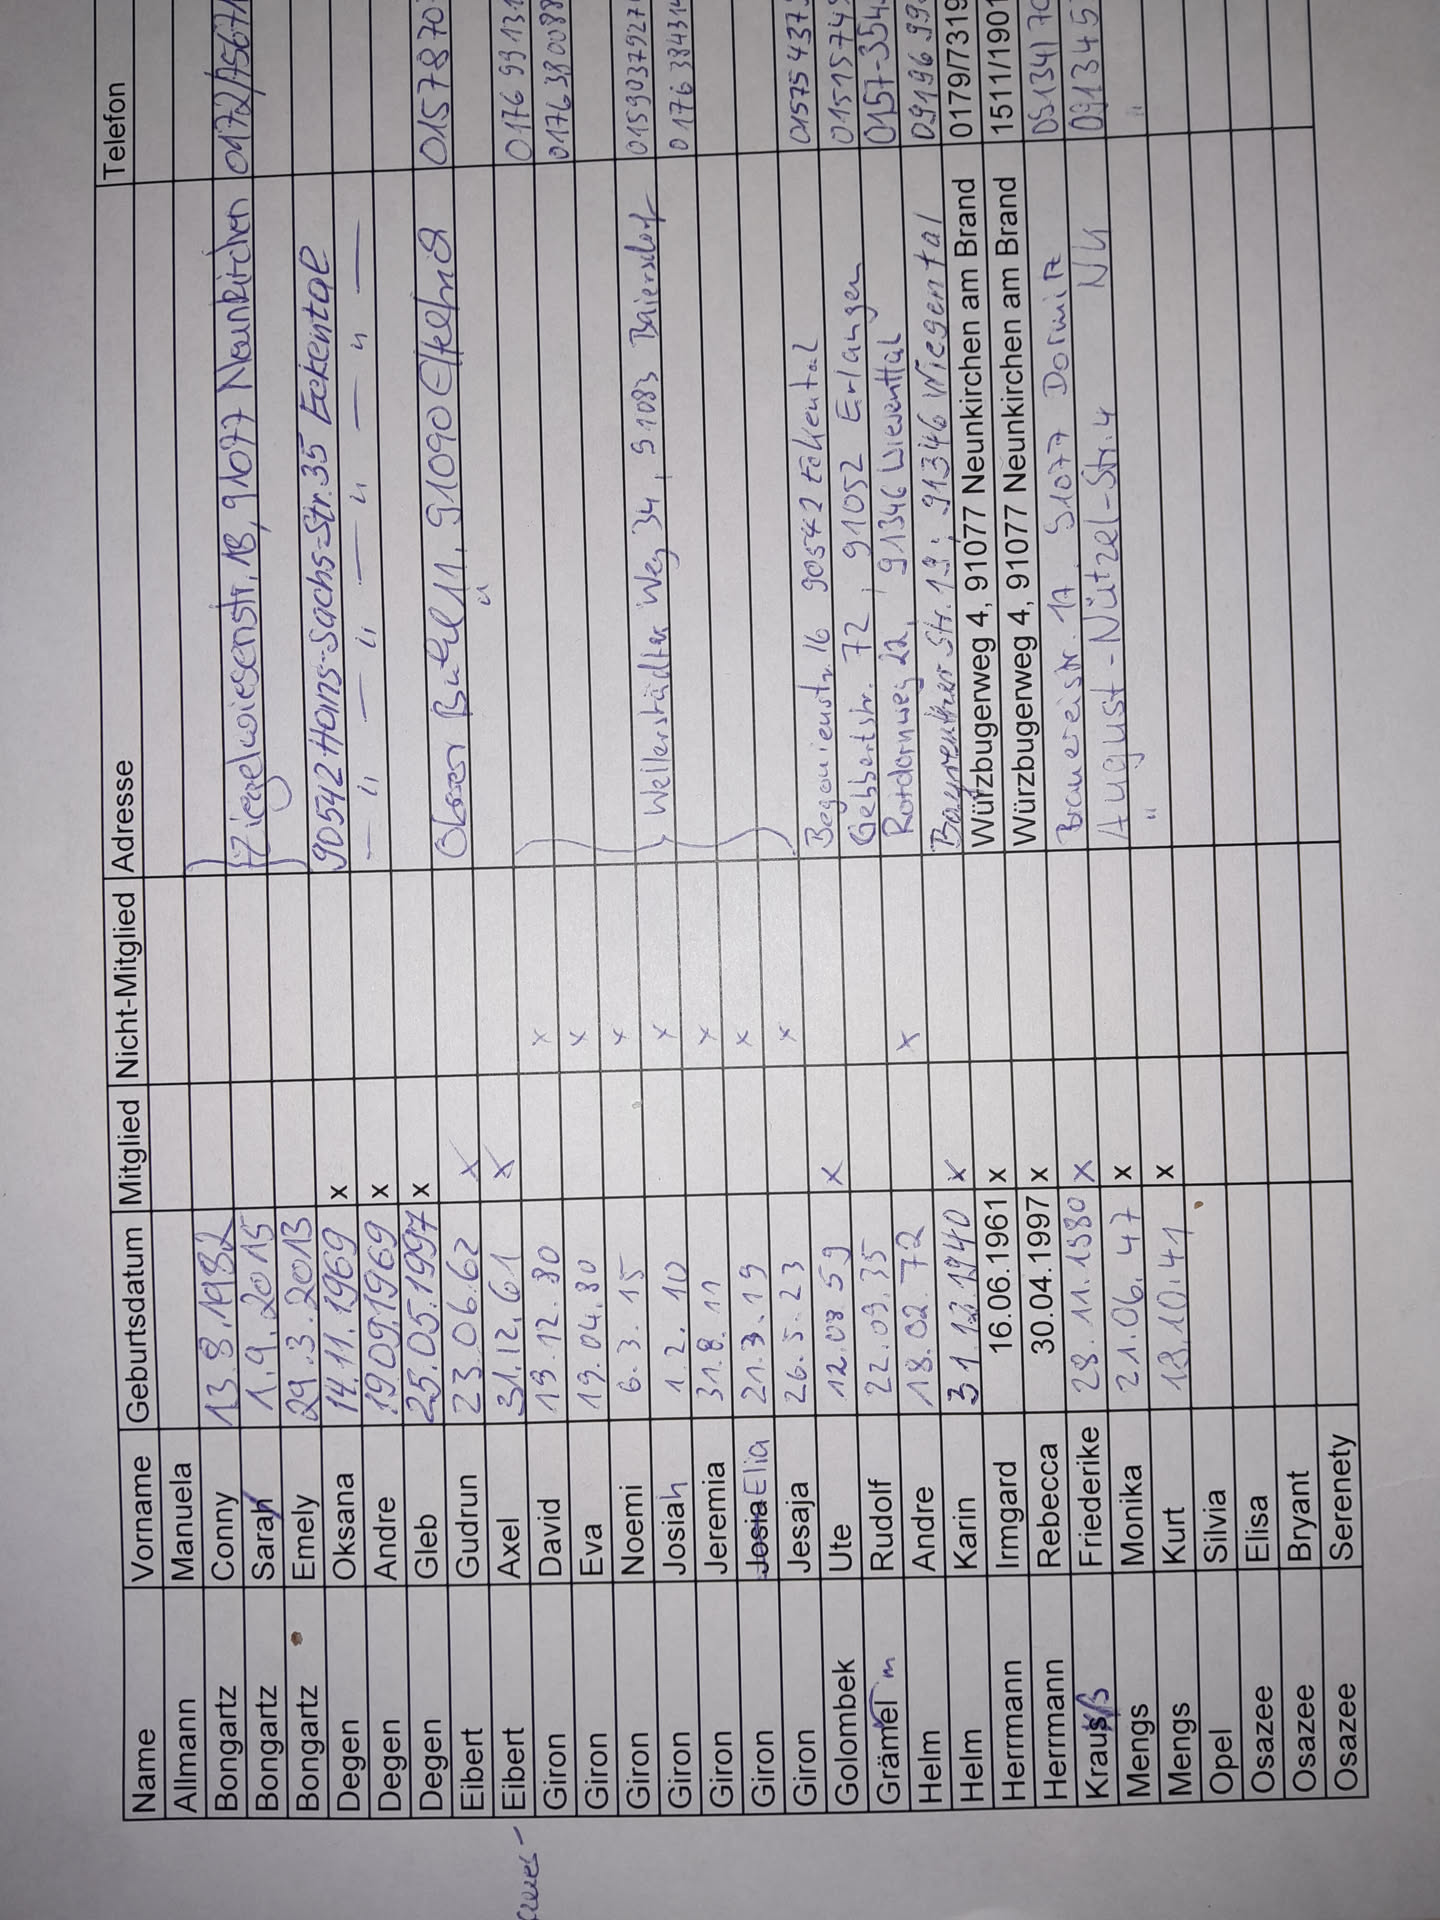 Name Vorname Geburtsdatum Mitglied Nicht-Mitglied Adresse Telefon
Allmann Manuela
Bongartz Conny 13.8.1982
Bongartz Sara 1.9.2015 Ziegelwiesenstr. 1B, 91077 Neunkirchen 0172/
Bongartz Emely 29.3.2013
Degen Oksana 14.11.1969 x 90542 Hans-Sachs-Str. 35 Eckental
Degen Andre 19.09.1969 x — " — " — " — " —
Degen Gleb 25.05.1997 x
Eibert Gudrun 23.06.62 x Oberer Bühl 11, 91090 Effeltrich 0157870
Eibert Axel 31.12.61 x
Giron David 19.12.80 x 017699131
Giron Eva 19.04.80 x 0176380088
Giron Noemi 6.3.15 x
Giron Josiah 1.2.10 x Weilerstädter Weg 34, 91083 Baiersdorf 0159037927
Giron Jeremia 31.8.11 x 0176384314
Giron Josia Elia 21.3.19 x
Giron Jesaja 26.5.23 x
Golombek Ute 12.08.59 x Begonienstr. 16 90542 Eckental 01575437
Grämel m Rudolf 22.09.35 Gebbertstr. 72, 91052 Erlangen 01515749
Helm Andre 18.02.72 x Rotdornweg 22, 91346 Wiesenttal 0157-354
Helm Karin 31.12.1940 x Bayreuther Str. 19, 91346 Wiesental 0919699
Herrmann Irmgard 16.06.1961 x Würzbugerweg 4, 91077 Neunkirchen am Brand 0179/7319
Herrmann Rebecca 30.04.1997 x Würzbugerweg 4, 91077 Neunkirchen am Brand 1511/1901
Krauß Friederike 28.11.1980 x Brauereistr. 17, 91077 Dormitz 09134170
Mengs Monika 21.06.47 x August-Nützel-Str. 4 NK 091345
Mengs Kurt 13.10.41 x " "
Opel Silvia
Osazee Elisa
Osazee Bryant
Osazee Serenety